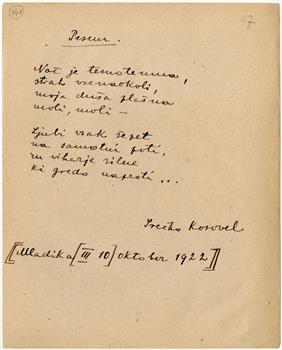 117
Pesem.
Noč je temotemna,
strah vsenaokoli,
moja duša plašna
moli, moli —
Ljubi vsak šepet
na samotni poti,
vse viharje silne
ki gredo naproti ...
Srečko Kosovel
[[Mladika [III 10] oktober 1922]]